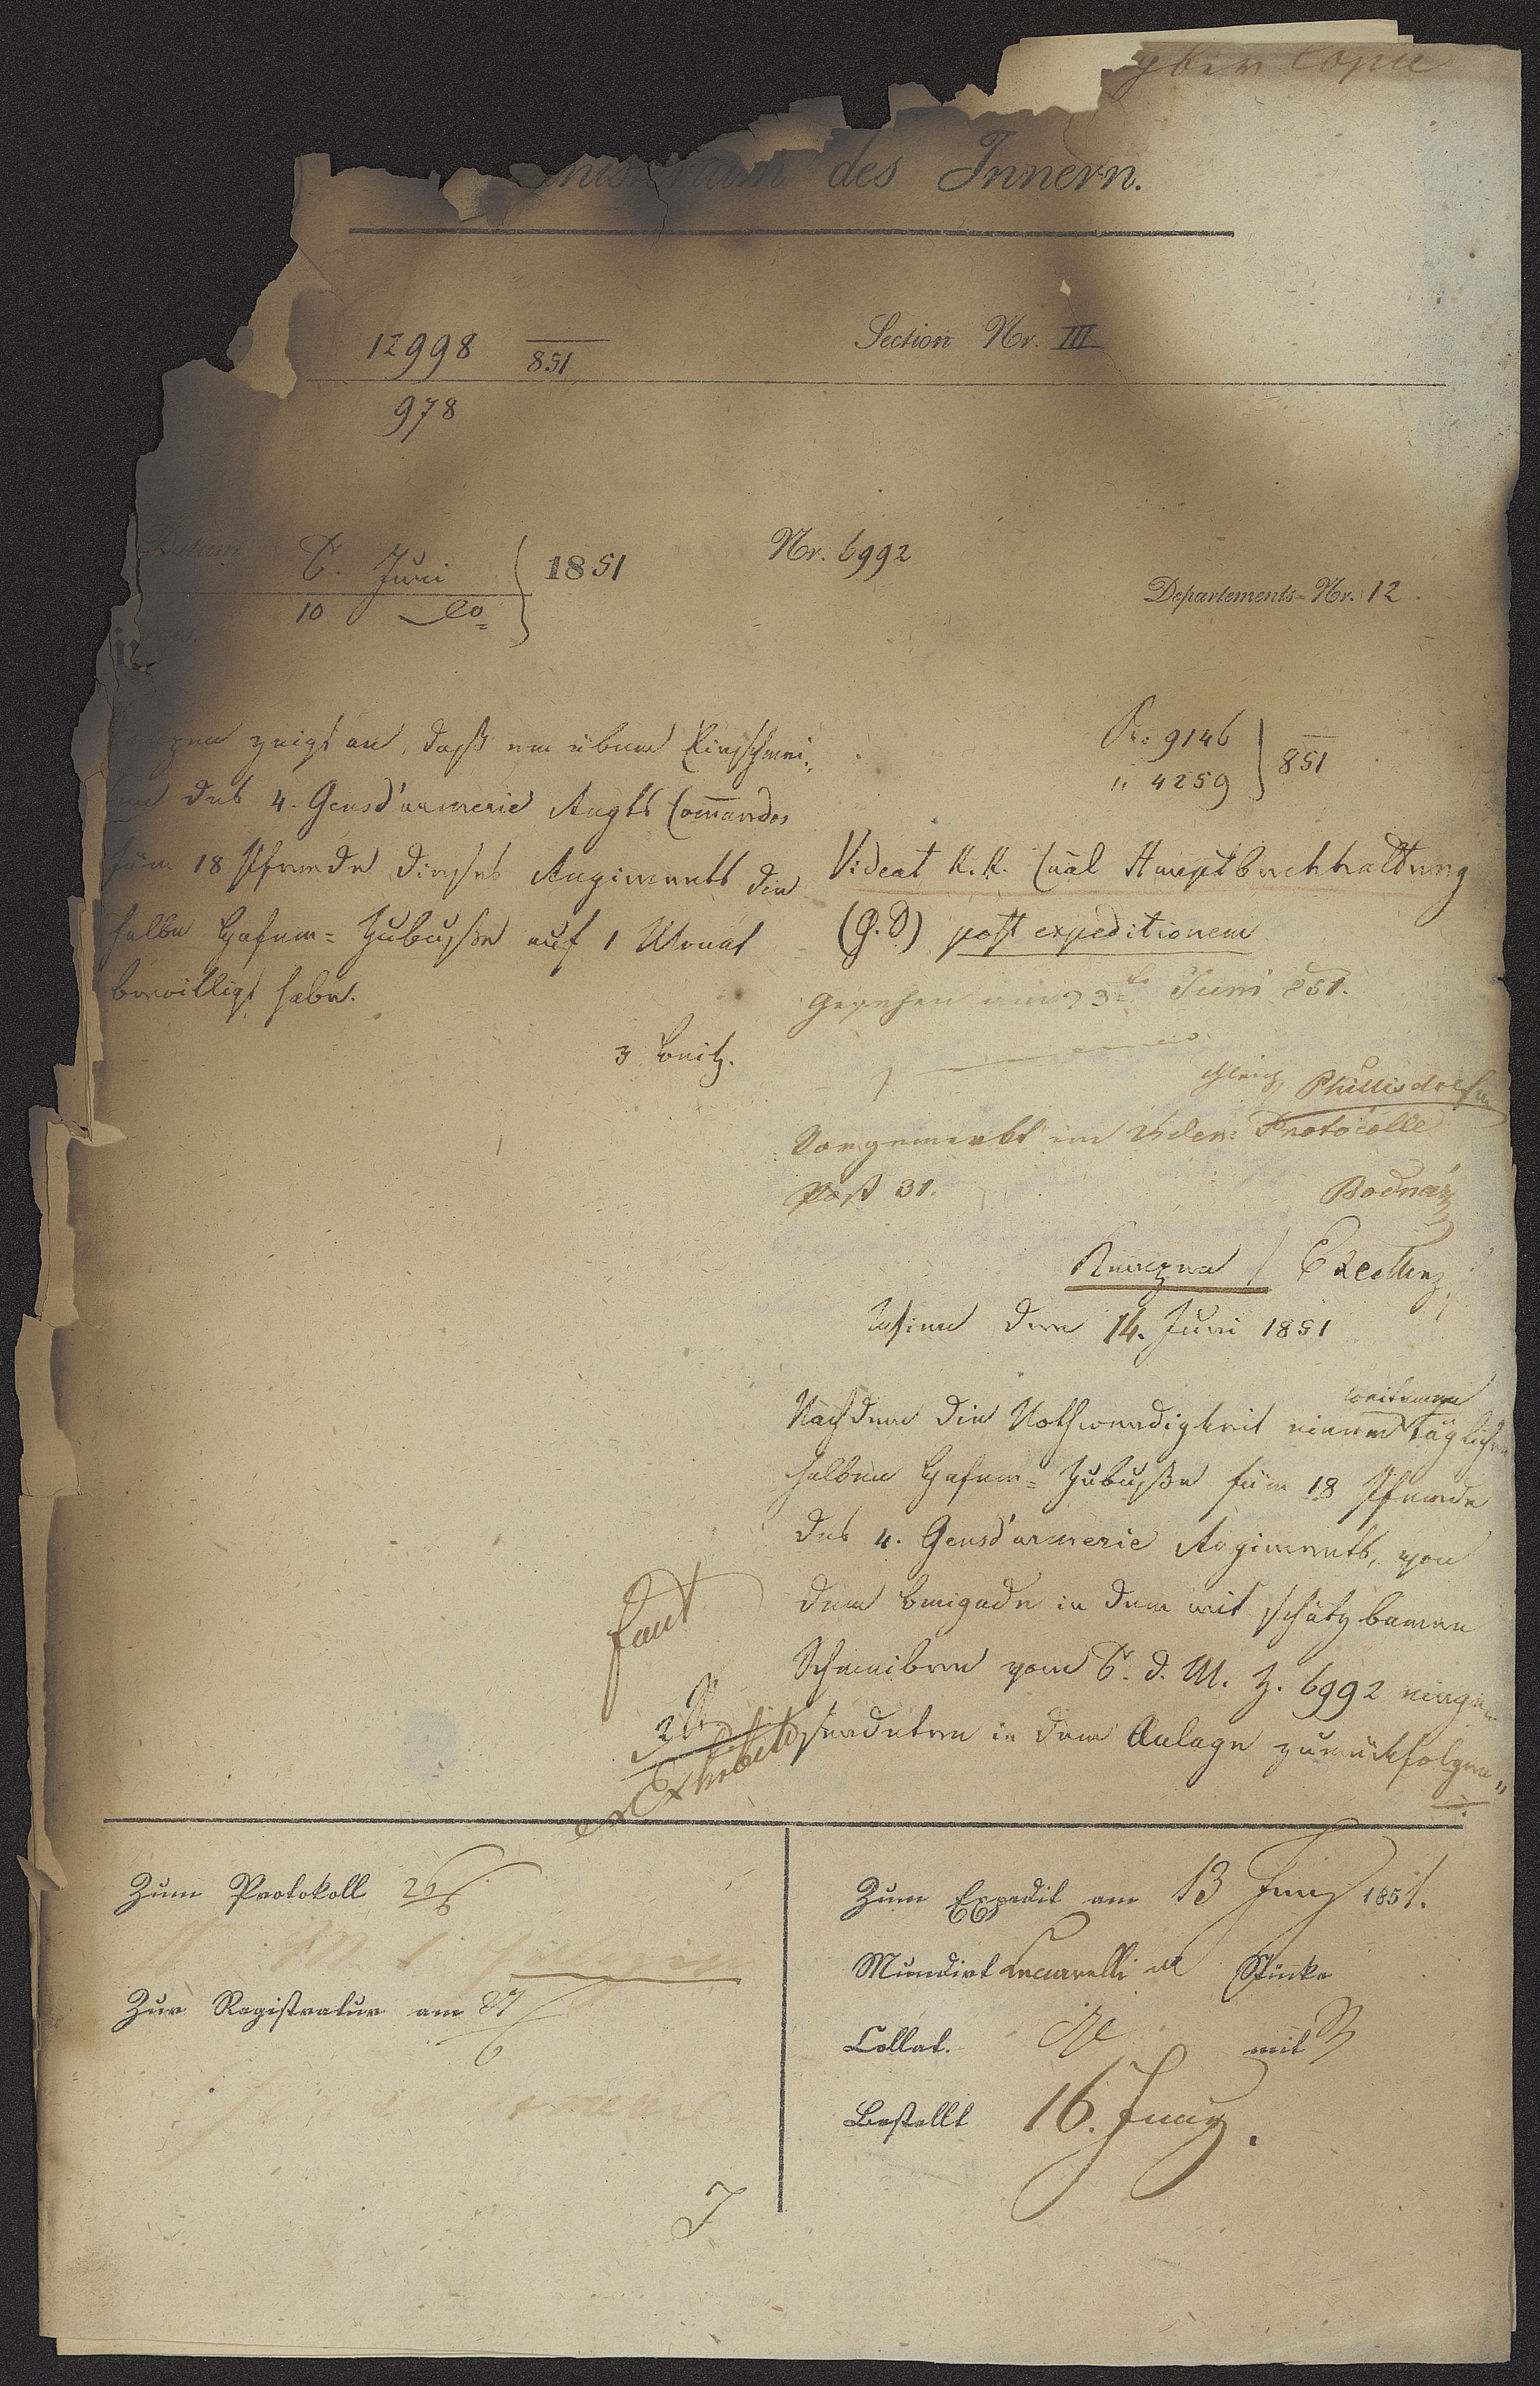 des Innern.
12998 851
Section Nr. III
978
Datum 8. Juni 1851
10 eo
Nr. 6992
Departements-Nr. 12
Kempen zeigt an, daß er über Einschrei-
ten des 4. Gensd'armerie Regts Commandos
für 18 Pferde dieses Regiments die
halbe Hafer-Zubuße auf 1 Monat
bewilligt habe.
3 Beil.
Pr: 9146
" 4259 851
Videat K. K. Cãal Hauptbuchhaltung
(G.D) post expeditionem
Gesehen am 23ten Juni 851.
Vorgemerkt im Protocolle
Post 31.
Bodnár
Kempen / Excellenz
Wien den 14. Juni 1851
Nachdem die Nothwendigkeit einer weiteren täglichen
halben Hafer-Zubuße für 18 Pferde
des 4. Gensd'armerie Regiments, von
dem Brigade in dem mit schätzbaren
Schreiben vom 8. d. M. Z. 6992 einge-
sendeten in der Anlage zurückfolgen-
Zum Protokoll 26/6
Zur Registratur am 27/6
Zum Expedit am 13 Juny 1851.
Mundirt Stücke
Collat. mit
Bestellt 16. Juny.